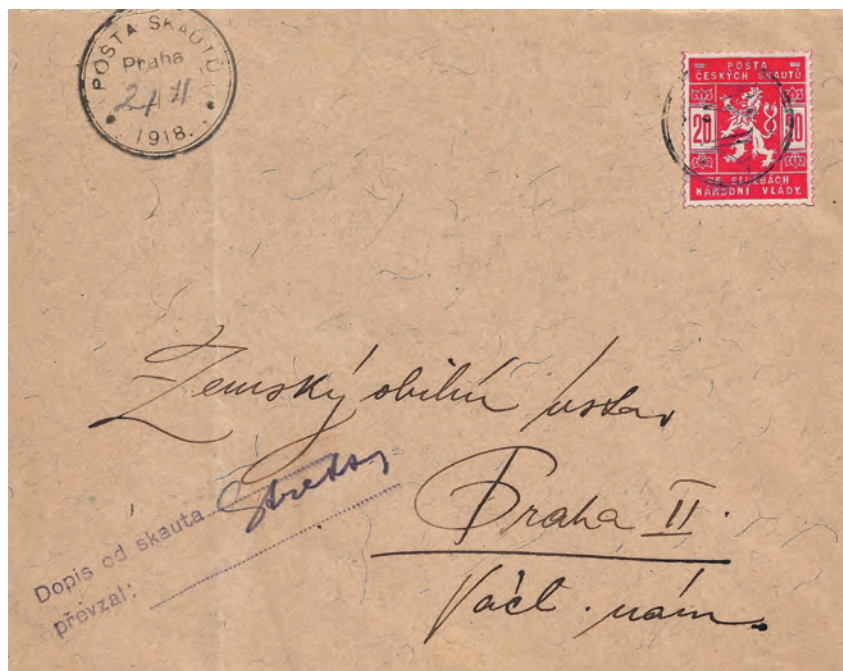 POŠTA SKAUTŮ
Praha
1918.
POŠTA
ČESKÝCH SKAUTŮ
20 20
VE SLUŽBÁCH
NÁRODNÍ VLÁDY.
Zemský obilní ústav
Praha II.
Václ. nám.
Dopis od skauta
převzal: